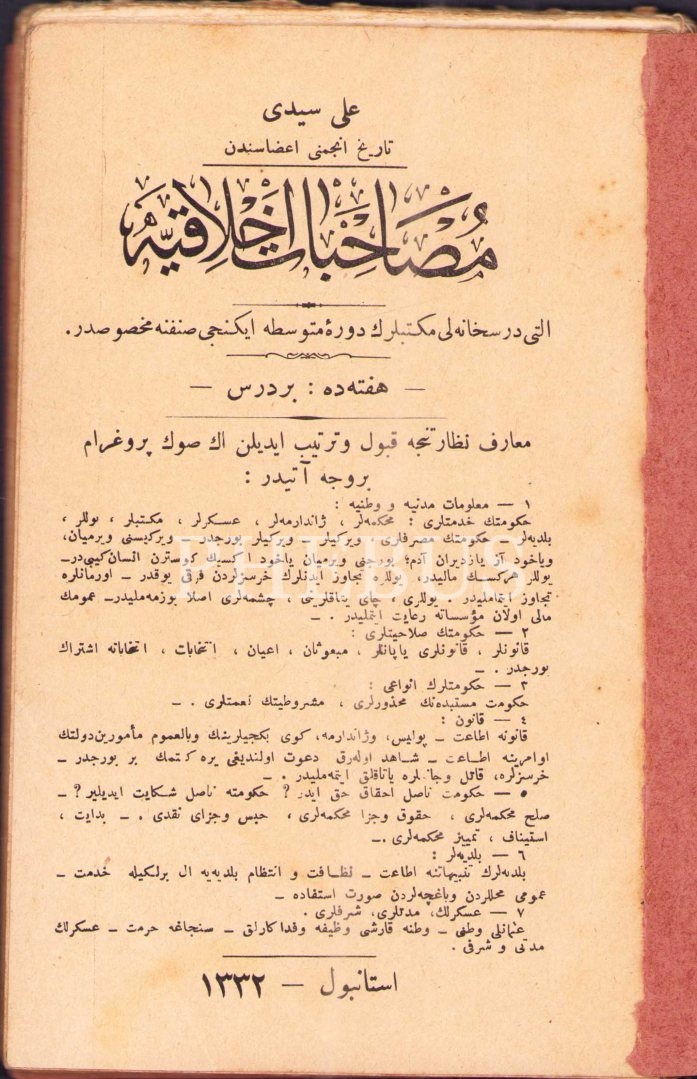 علی سیدی
تاریخ انجمنی اعضاسندن
مُصَاحَبَات اَخْلَاقِیَّه
التی درسخانه‌لی مکتبلرك دورهٔ متوسطه ایکنجی صنفنه مخصوصدر.
— هفته‌ده : بر درس —
معارف نظارتنجه قبول و ترتیب ایدیلن اك صوك پروغرام
بروجه آتیدر :
١ — معلومات مدنیه و وطنیه :
حکومتك خدمتلری : محکمه‌لر ، ژاندارمه‌لر ، عسکرلر ، مکتبلر ، یوللر ،
بلدیه‌لر . حکومتك مصرفلری . ویرکیلر — ویرکیلر بورجدر — ویرکیسنی ویرمیان،
ویاخود آز یازدیران آدم؛ بورجنی ویرمیان یاخود اکسیك کوسترن انسان کیبی‌در—
یوللر هرکسك مالیدر، یوللره تجاوز ایدنلرك خرسزلردن فرقی یوقدر — اورمانلره
تجاوز ایتمامه‌لیدر . یوللری ، چای یتاقلرینی ، چشمه‌لری اصلا بوزمه‌ملیدر— عمومك
مالی اولان مؤسساته رعایت ایتملیدر . —
٢ — حکومتك صلاحیتلری :
قانونلر ، قانونلری یاپانلر ، مبعوثان ، اعیان ، انتخابات ، انتخاباته اشتراك
بورجدر . —
٣ — حکومتلرك انواعی :
حکومت مستبده‌نك محذورلری ، مشروطیتك نعمتلری . —
٤ — قانون :
قانونه اطاعت — پولیس، وژاندارمه، کوی بکجیلرینك وبالعموم مأمورین‌دولتك
اوامرینه اطاعت — شاهد اوله‌رق دعوت اولندیغی یره کتمك بر بورجدر —
خرسزلره، قاتل وجانیلره یاتاقلق ایتمه‌ملیدر . —
٥ — حکومت ناصل احقاق حق ایدر؟ حکومته ناصل شکایت ایدیلیر؟ —
صلح محکمه‌لری ، حقوق وجزا محکمه‌لری ، حبس وجزای نقدی . — بدایت ،
استیناف ، تمییز محکمه‌لری .—
٦ — بلدیه‌لر :
بلدیه‌لرك تنبیهاتنه اطاعت — نظافت و انتظام بلدیه‌یه ال برلکیله خدمت —
عمومی محللردن وباغچه‌لردن صورت استفاده —
٧ — عسکرلك، مدتلری، شرفلری .
عثمانلی وطنی — وطنه قارشی وظیفه وفداکارلق — سنجاغه حرمت — عسکرلك
مدتی و شرفی .
استانبول — ١٣٣٢
PHEBUS